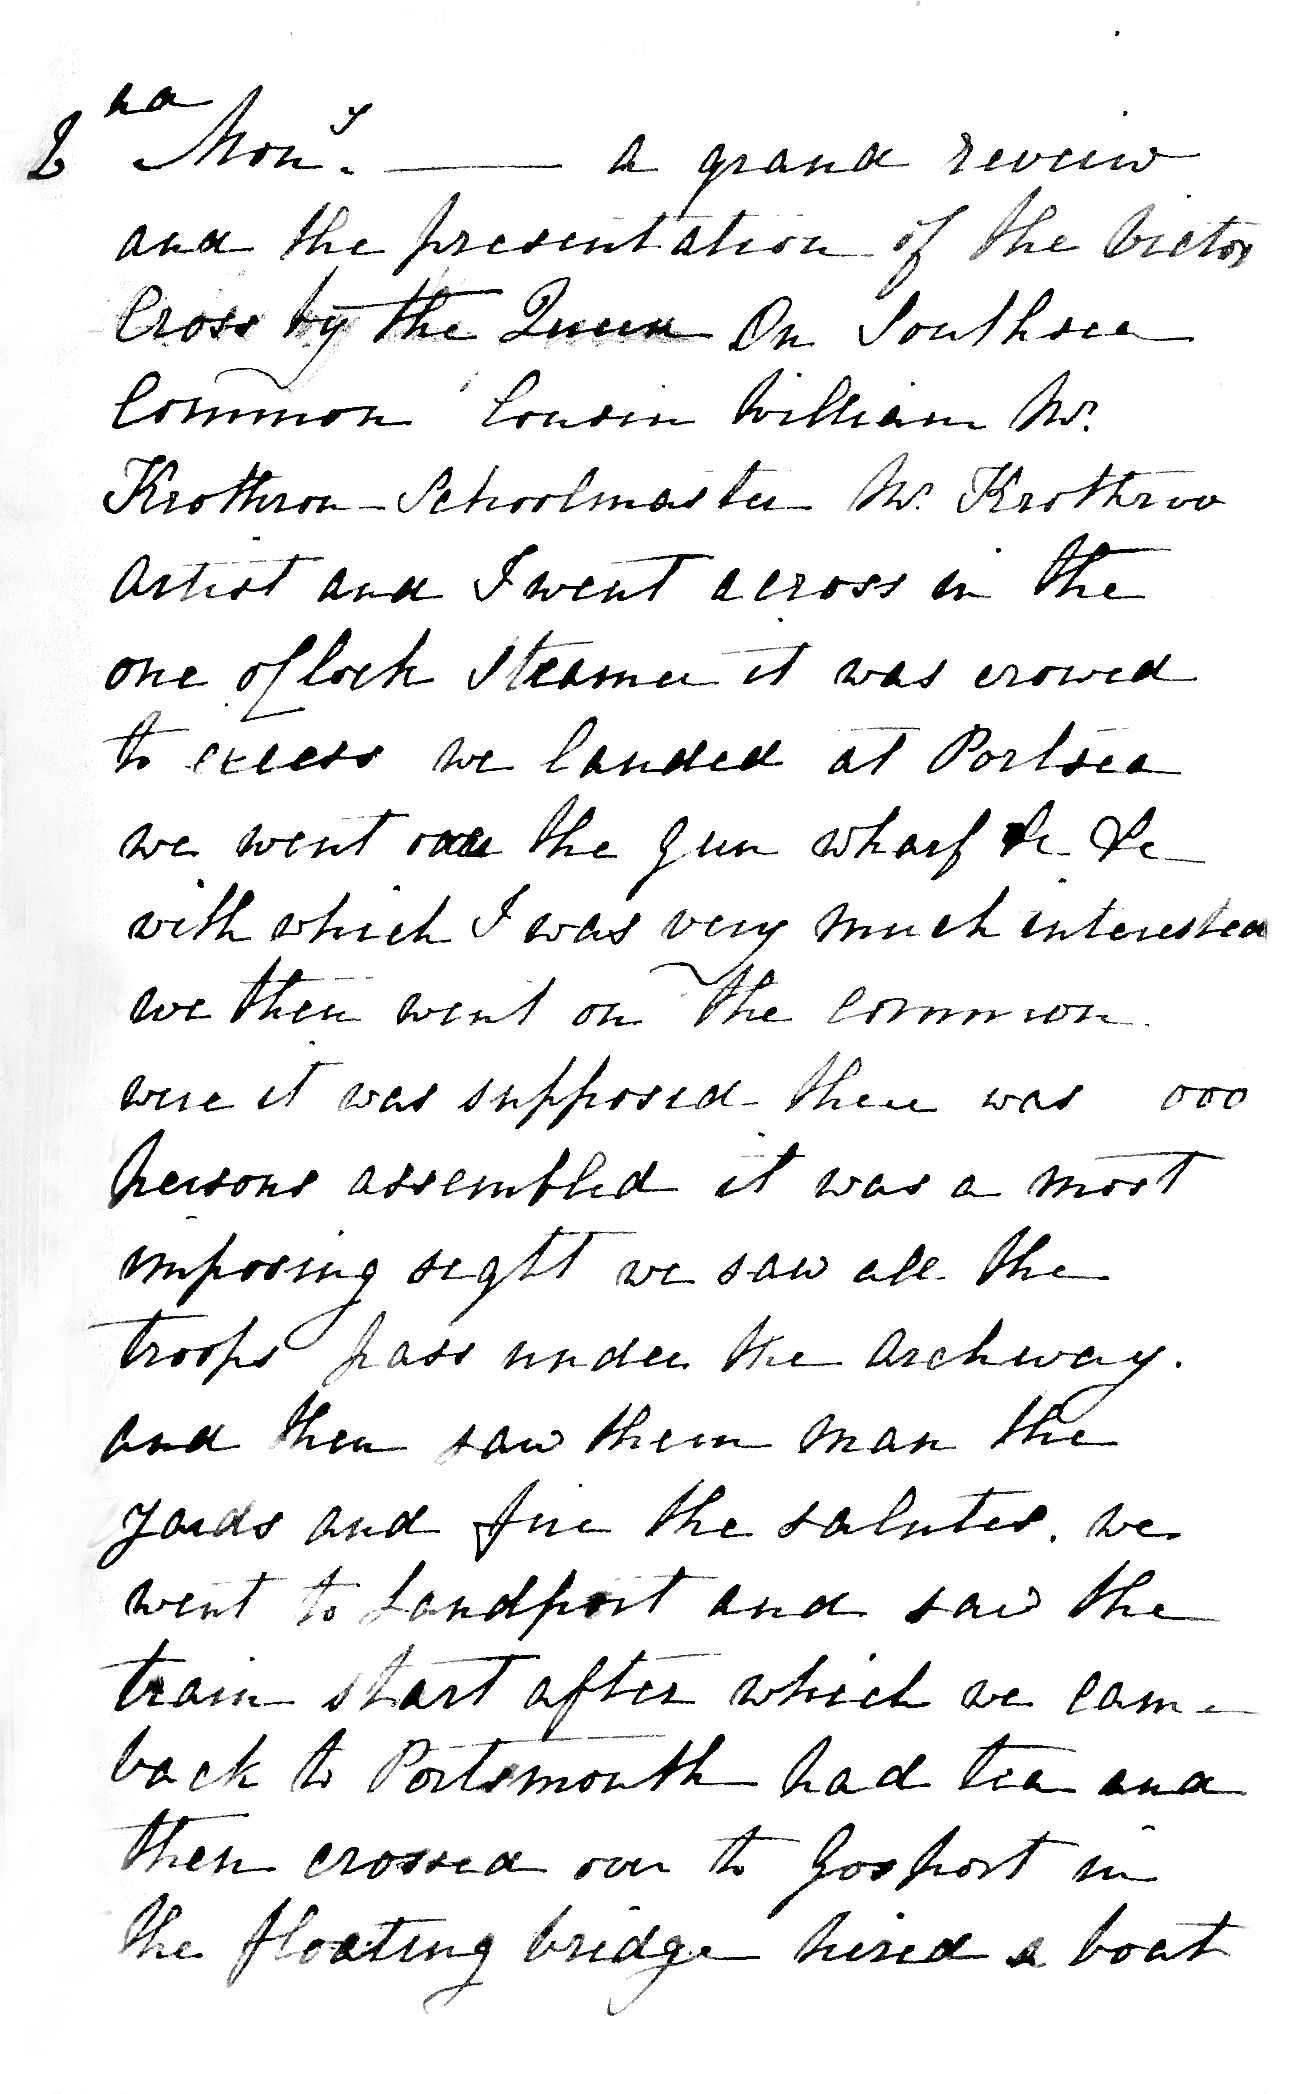 2nd Mony. — a grand review
and the presentation of the Victor
Cross by the Queen On Southsea
Common Cousin William Mr.
Krothron - Schoolmaster Mr. Krothron
Artist and I went across in the
one oClock Steamer it was crowed
to excess we landed at Portsea
we went over the Gun wharf &c &c
with which I was very much interested
we then went on the common
were it was supposed there was 000
persons assembled it was a most
imposing seght we saw all the
troops pass under the archway.
and then saw them man the
yards and fire the salutes. we
went to Landport and saw the
train start after which we came
back to Portsmouth had tea and
then crossed over to Gosport in
the floating bridge hired a boat